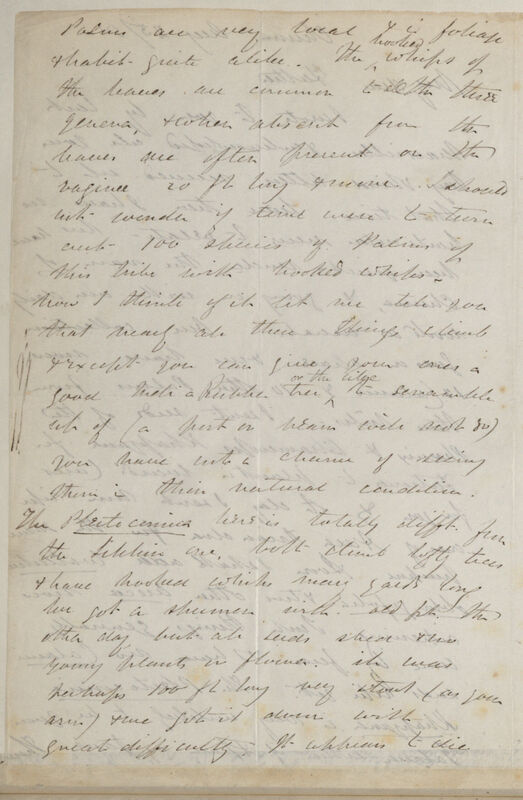 Palms are very local & in foliage
& habit quite alike. The hooked whips of
the leaves are common to all the three
genera, & when absent from the
leaves are often present on the
vaginae 20 ft long & more. I should
not wonder if time were to turn
out 100 species of Palms of
this tribe with hooked whips –
now I think of it let me tell you
that nearly all these things climb
& except you can give your ones a
good India Rubber tree or the like to scramble
up of (a post or beam will not do)
you have not a chance of seeing
them in their natural condition.
The Plectocomia here is totally difft. from
the Sikkim one, both climb lofty trees
& have hooked whips many yards long
we got a specimen with old fr. the
other day but all seeds shed & no
young plants or flower. it was
perhaps 100 ft long very stout (as your
arm) & we got it down with
great difficulty – It appears to die